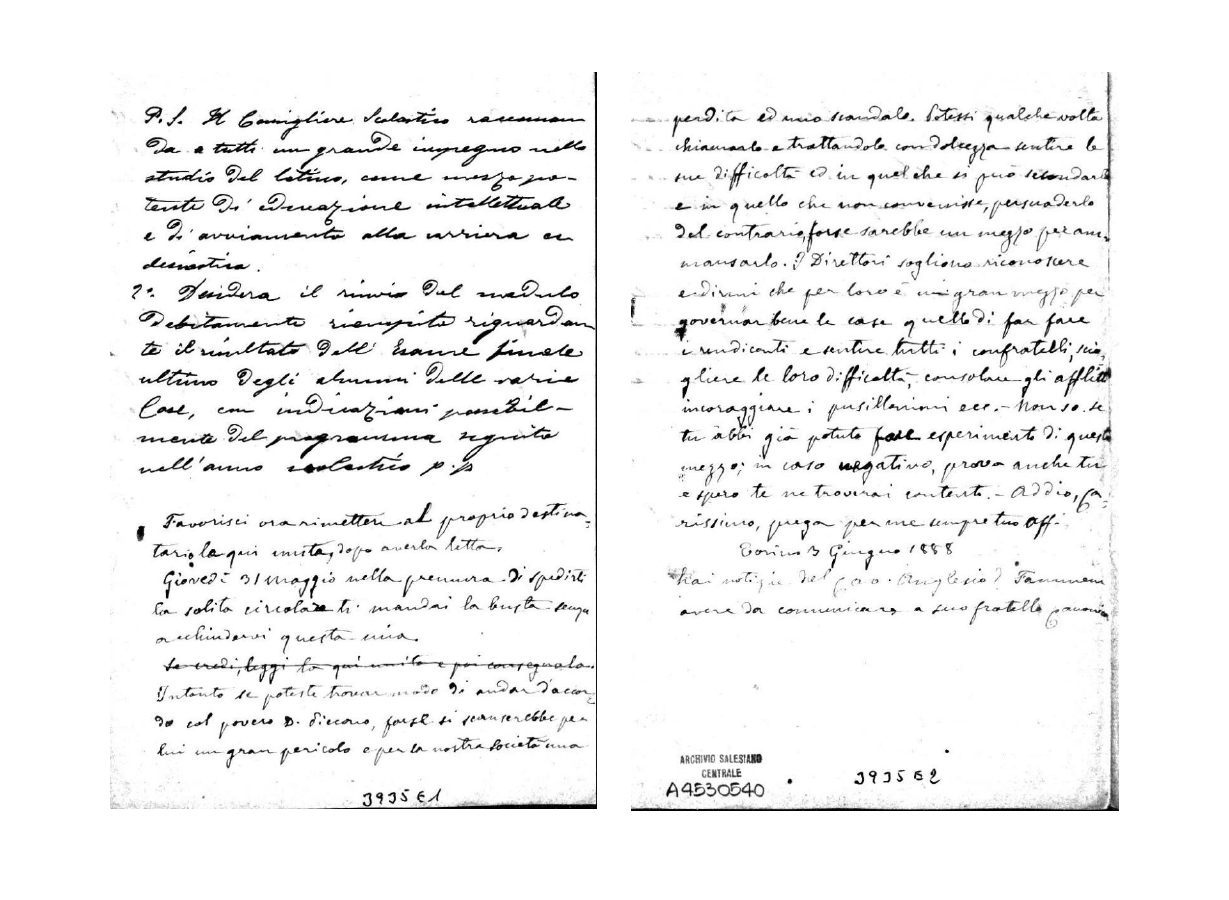 P.S. Il Consigliere Scolastico raccoman
da a tutti un grande impegno nello
studio del latino, come mezzo po-
tente di educazione intellettuale
e di avviamento alla carriera ec
clesiastica.
2º. Desidera il rinvio del modulo
debitamente riempito riguardan
te il risultato dell' Esame finale
ultimo degli alunni delle varie
Case, con indicazioni possibil-
mente del programma seguito
nell'anno scolastico p.p
Favorisci ora rimettere al proprio destina-
tario la qui unita, dopo averla letta.
Giovedì 31 maggio nella premura di spedirti
la solita circolare ti mandai la busta senza
acchiudervi questa mia.
Se credi, leggi la qui unita e poi consegnala.
Intanto se poteste trovar modo di andar d'accor
do col povero D. forse si scanserebbe per
lui un gran pericolo e per la nostra società una
perdita ed uno scandalo. Potessi qualche volta
chiamarlo e trattandolo con dolcezza sentire le
sue difficoltà ed in quel che si può secondarlo
e in quello che non convenisse, persuaderlo
del contrario, forse sarebbe un mezzo per am-
mansarlo. I Direttori sogliono riconoscere
e dirmi che per loro è un gran mezzo per
governar bene le case quello di far fare
i rendiconti e sentire tutti i confratelli, scio
gliere le loro difficoltà, consolare gli afflitti
incoraggiare i pusillanimi ecc. - Non so se
tu abbi già potuto fare esperimento di questo
mezzo; in caso negativo, prova anche tu
e spero te ne troverai contento. - Addio, Ca-
rissimo, prega per me sempre tuo aff.
Torino 3 Giugno 1888
Hai notizie del Anglesio?
avere da comunicare a suo fratello Canonico
ARCHIVIO SALESIANO
CENTRALE
A4530540
3935 E1
3935 E2